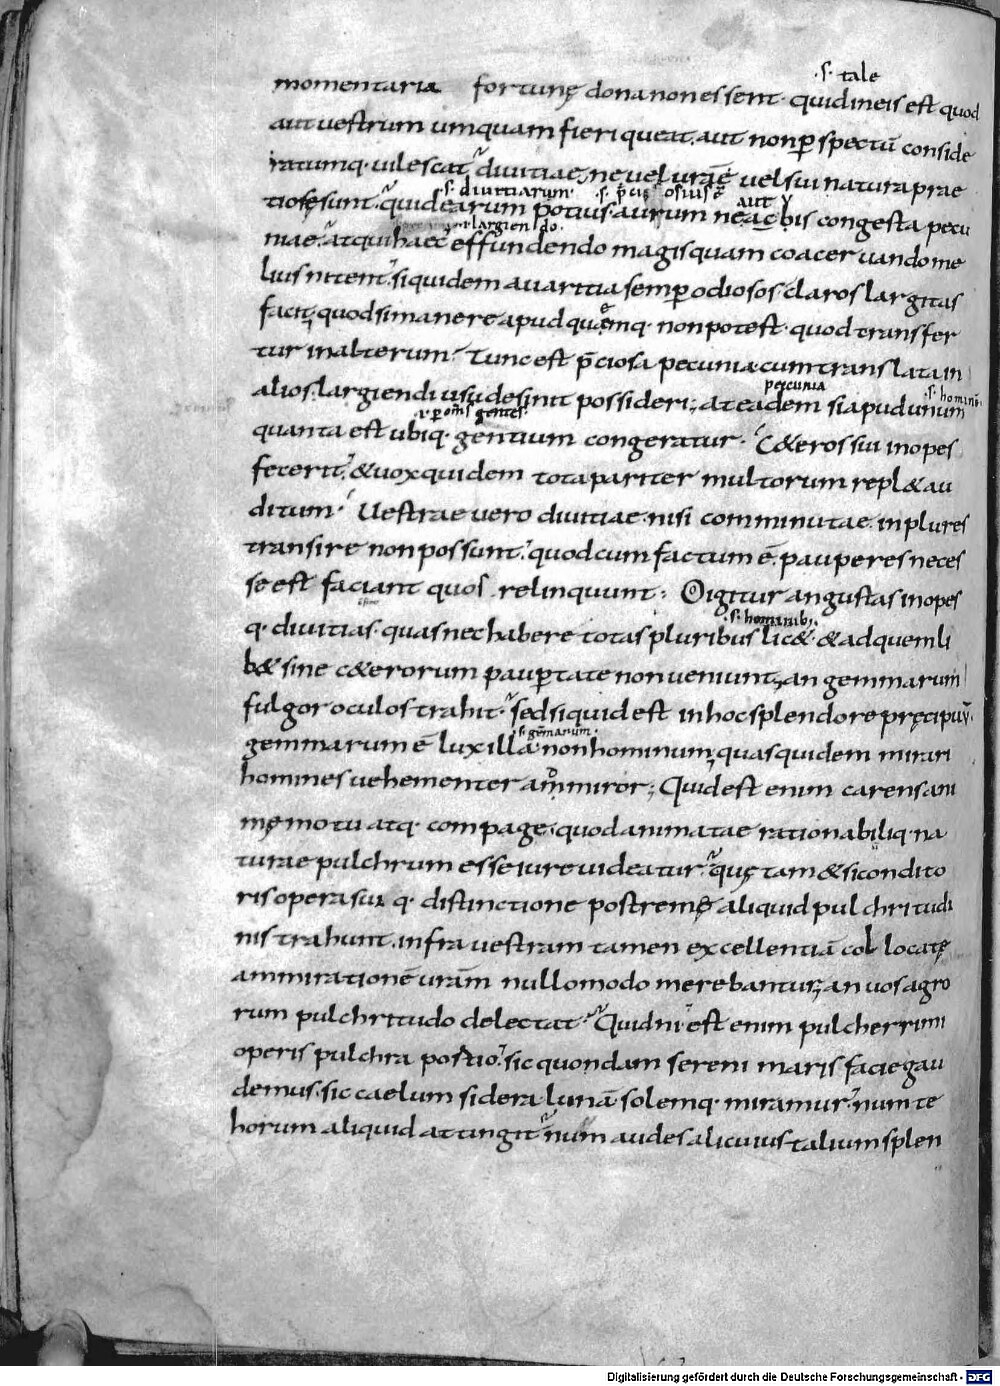 ·s· tale
momentaria fortunę dona non essent· quid in eis est quod
aut uestrum umquam fieri queat· aut non ꝑspectū conside
ratumq· uilescat? diuitiae ne uel ur̄ae uel sui natura prae
·s· diuitiarum·
aut
tiosę sunt? quid earum potius· aurum ne ac bis congesta pecu
·i· largiendo·
niae? atqui haec effundendo magis quam coaceruando me
lius nitent? siquidem auaritia semꝑ odiosos· claros largitas
facit; quod si manere apud quemq· non potest· quod transfer
tur in alterum· Tunc est p̄ciosa pecunia· cum translata in
alios· largiendi usu desinit possideri; at eadem si apud unum
pecunia
·s· hominē
·i· ꝑ om̄s gentes·
quanta est ubiq· gentium congeratur· C&eros sui inopes
fecerit? & uox quidem tota pariter multorum repl& au
ditum· Uestrae uero diuitiae· nisi comminutae· in plures
transire non possunt? quod cum factum ē· pauperes neces
se est faciant quos relinquunt· O igitur angustas inopes
·s· hominib;·
q· diuitias· quas nec habere totas pluribus lic&· & ad quemli
b& sine c&erorum pauꝑtate non ueniunt; an gemmarum
fulgor oculos trahit· sed si quid est in hoc splendore pręcipuū·
·s· gēmarum·
gemmarum ē lux illa non hominum; quas quidem mirari
homines uehementer ammiror; Quid est enim carens ani
mę motu atq· compage· quod animatae rationabiliq· na
turae pulchrum esse iure uideatur? quę tam&si condito
ris opera sui q· distinctione postremę aliquid pulchritudi
nis trahunt· infra uestram tamen excellentiā collocatę
ammirationē ur̄am nullo modo merebantur; an uos agro
rum pulchritudo delectat? Quid ni? est enim pulcherrimi
operis pulchra portio? sic quondam sereni maris facie gau
demus· sic caelum sidera lunā solemq· miramur? num te
horum aliquid attingit? num audes alicuius talium splen
Digitalisierung gefördert durch die Deutsche Forschungsgemeinschaft - DFG